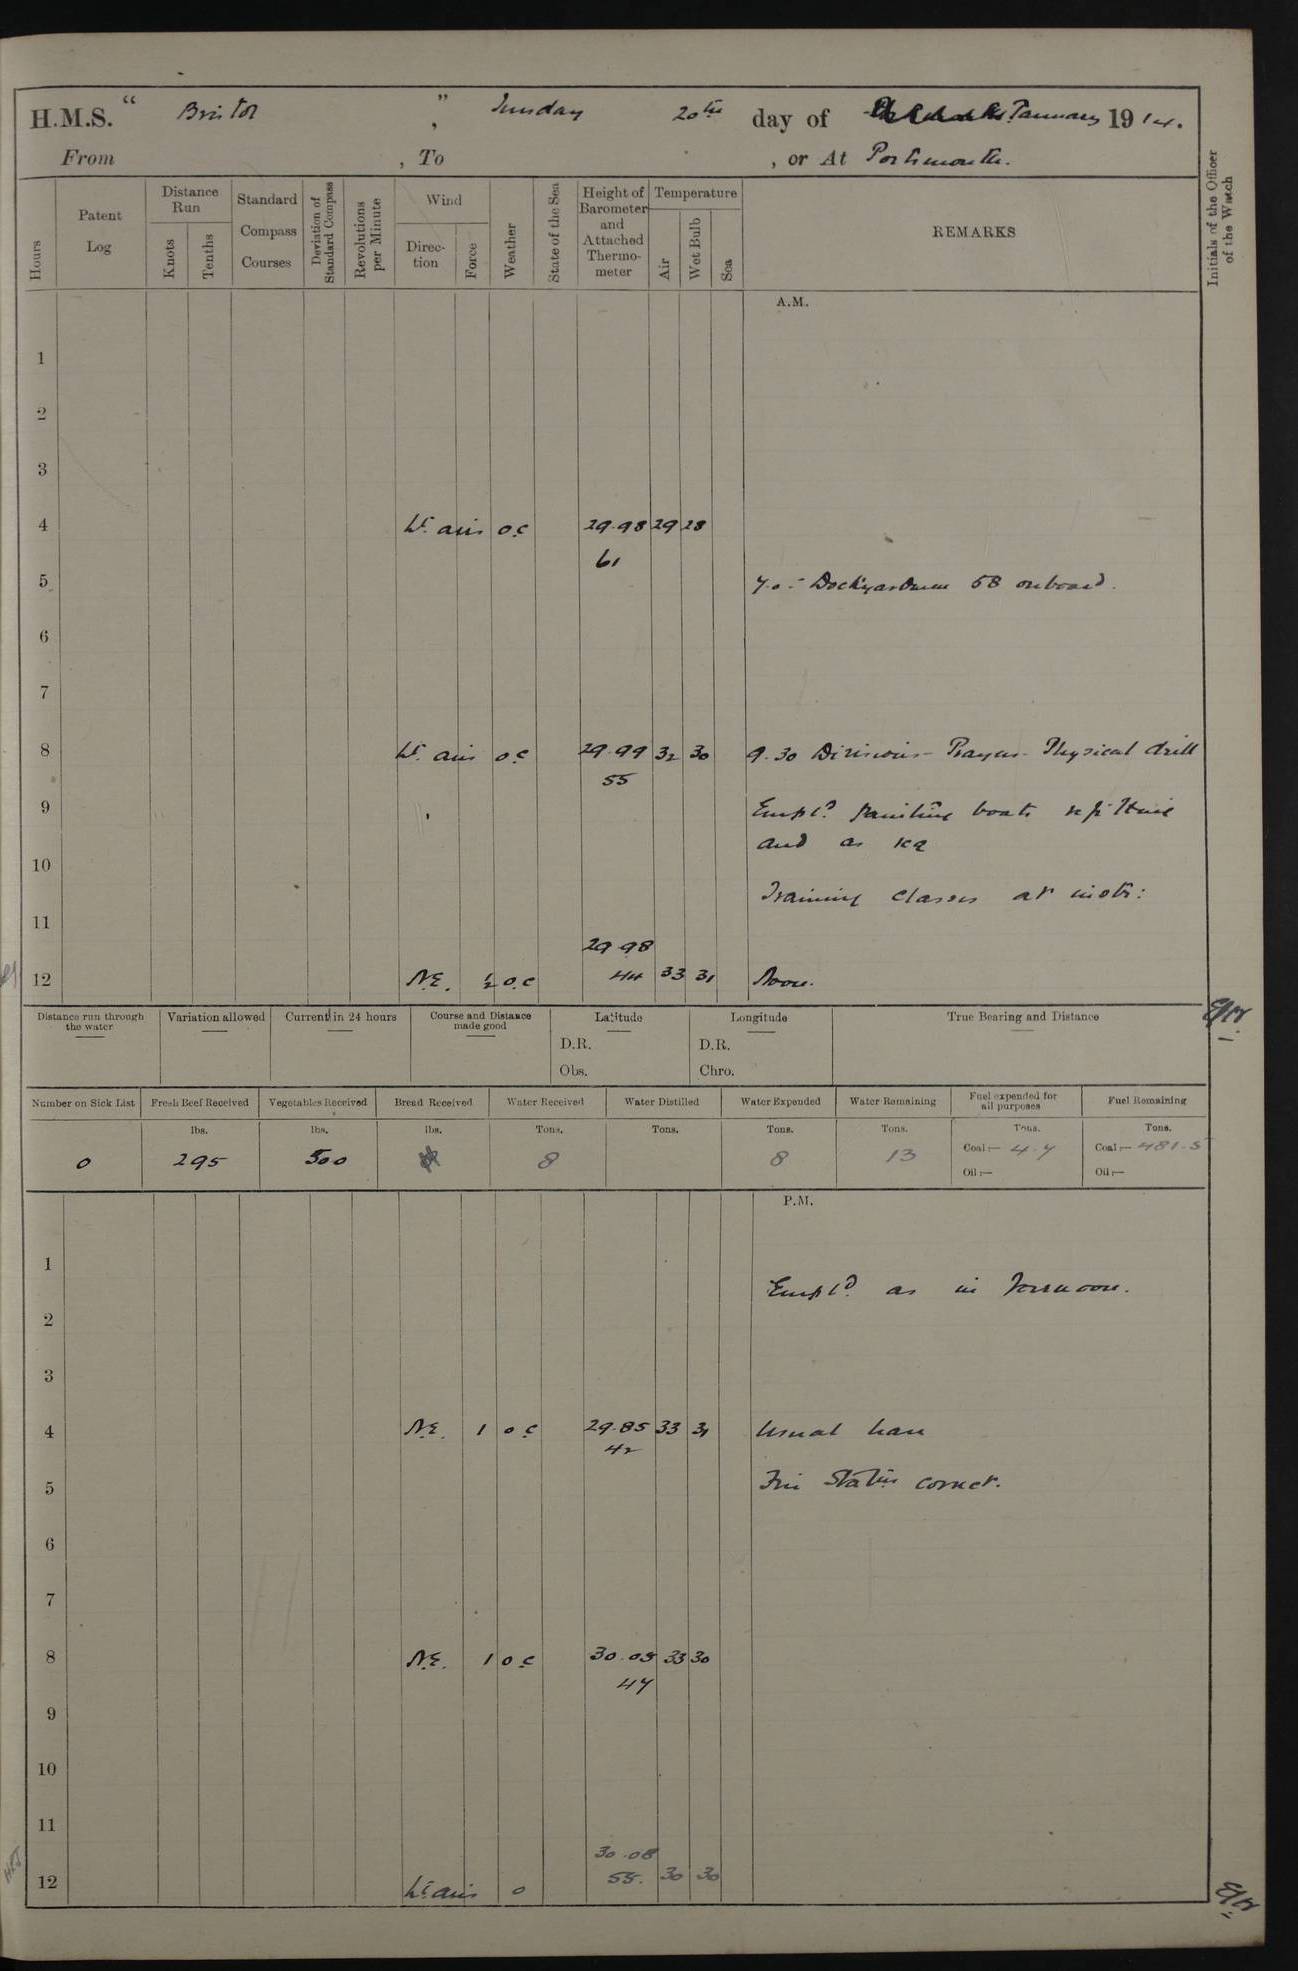 H.M.S. “ Bristol ” , Tuesday 20th day of January 1914.
From , To , or At Portsmouth.
Hours Patent Log Distance Run Knots Tenths Standard Compass Courses Deviation of Standard Compass Revolutions per Minute Wind Direction Force Weather State of the Sea Height of Barometer and Attached Thermometer Temperature Air Wet Bulb Sea REMARKS Initials of the Officer of the Watch
A.M.
1
2
3
4 Lt airs o.c 29.98 29 28
61
5 7.0 - Dockyardmen 58 onboard.
6
7
8 Lt airs o.c 29.99 32 30 9.30 Divisions - Prayers - Physical drill
55
9 Empld. painting boats refitting
and as req
10
Training classes at instn:
11
29.98
12 N.E. ½ o.c 44 33 31 Noon.
Distance run through the water Variation allowed Current in 24 hours Course and Distance made good Latitude Longitude True Bearing and Distance
D.R. D.R.
Obs. Chro.
Number on Sick List Fresh Beef Received Vegetables Received Bread Received Water Received Water Distilled Water Expended Water Remaining Fuel expended for all purposes Fuel Remaining
lbs. lbs. lbs. Tons. Tons. Tons. Tons. Tons. Tons.
0 295 500 8 8 13 Coal:— 4.7 Coal:— 481.5
Oil:— Oil:—
P.M.
1
Empld. as in forenoon.
2
3
4 N.E. 1 o c 29.85 33 31 Usual leave
42
5 Fire Stations correct.
6
7
8 N.E. 1 o c 30.05 33 30
47
9
10
11
30.08
12 Lt airs o 55. 30 30